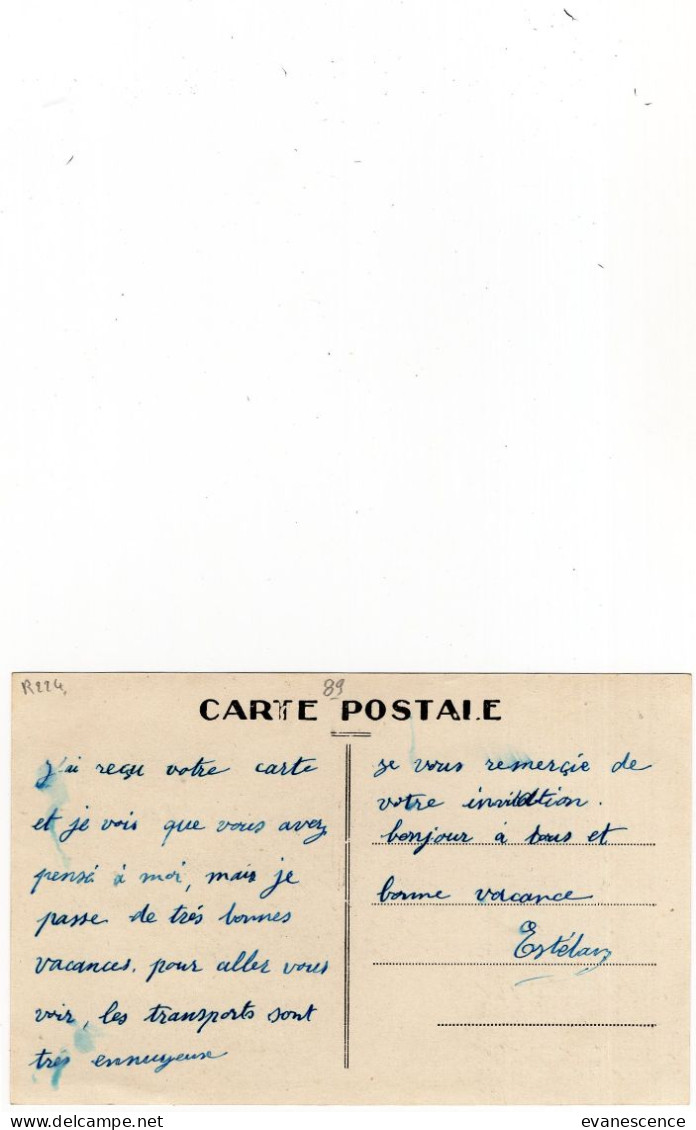 R224,
89
CARTE POSTALE
J'ai reçu votre carte
et je vois que vous avez
pensé à moi, mais je
passe de trés bonnes
vacances. pour aller vous
voir, les transports sont
trés ennuyeux
je vous remerçie de
votre invitation.
bonjour à tous et
bonne vacance
delcampe.net
evanescence